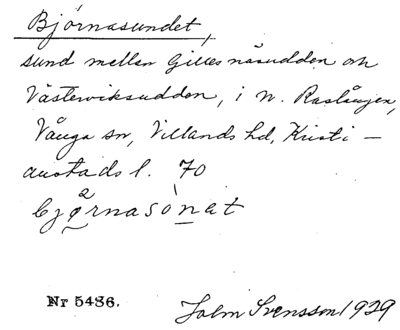 Björnasundet,
sund mellan Gillesnäsudden och
Västerviksudden, i n. Raslången,
Vånga sn, Villands hd, Kristi-
anstads l. 70
bjǫrnasònat
Nr 5486.
John Svensson 1929